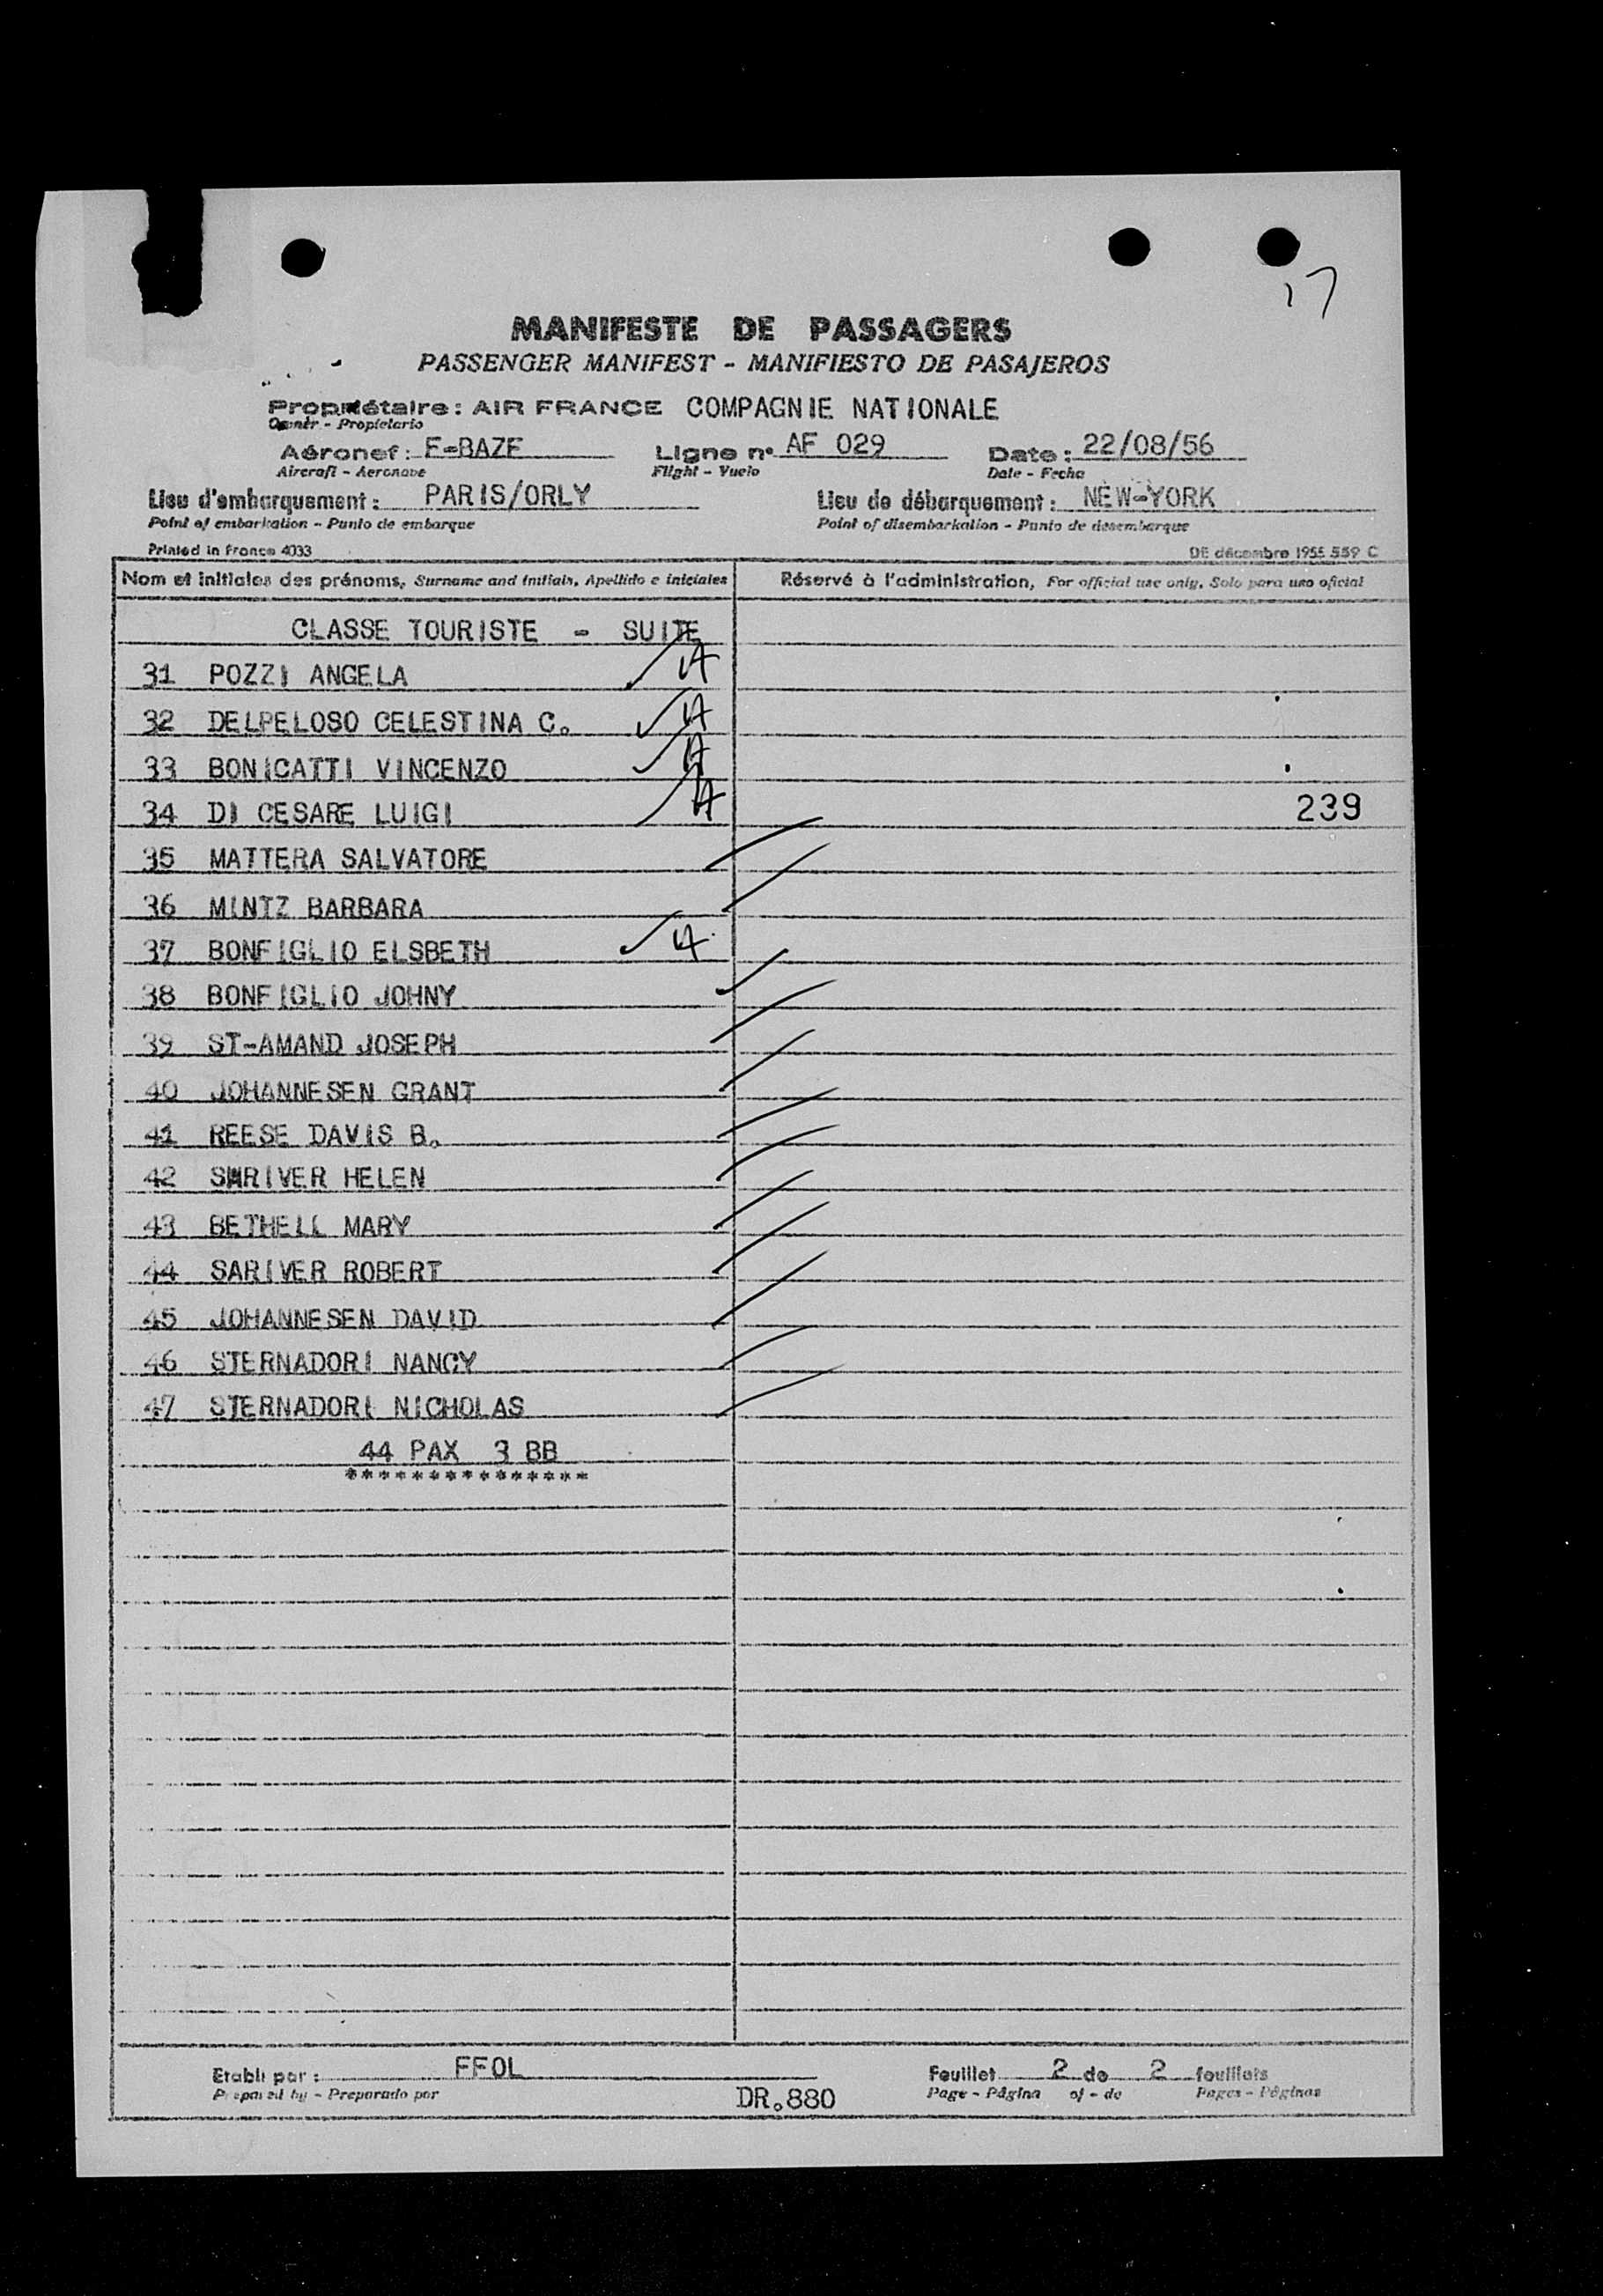 17
MANIFESTE DE PASSAGERS
PASSENGER MANIFEST - MANIFIESTO DE PASAJEROS
Propriétaire: AIR FRANCE COMPAGNIE NATIONALE
Owner - Propietario
Aéronef: F-BAZE Ligne n° AF 029 Date: 22/08/56
Aircraft - Aeronave Flight - Vuelo Date - Fecha
Lieu d'embarquement: PARIS/ORLY Lieu de débarquement: NEW-YORK
Point of embarkation - Punto de embarque Point of disembarkation - Punto de desembarque
Printed in France 4033 DE décembre 1955 559 C
Nom et initiales des prénoms, Surname and initials, Apellido e iniciales Réservé à l'administration, For official use only, Solo para uso oficial
CLASSE TOURISTE - SUITE
31 POZZI ANGELA
32 DELPELOSO CELESTINA C.
33 BONICATTI VINCENZO
34 DI CESARE LUIGI 239
35 MATTERA SALVATORE
36 MINTZ BARBARA
37 BONFIGLIO ELSBETH
38 BONFIGLIO JOHNY
39 ST-AMAND JOSEPH
40 JOHANNESEN GRANT
41 REESE DAVIS B.
42 SHRIVER HELEN
43 BETHELL MARY
44 SARIVER ROBERT
45 JOHANNESEN DAVID
46 STERNADORI NANCY
47 STERNADORI NICHOLAS
44 PAX 3 BB
***************
Etabli par: FFOL Feuillet 2 de 2 feuillets
Prepared by - Preparado por DR.880 Page - Página of - de Pages - Páginas